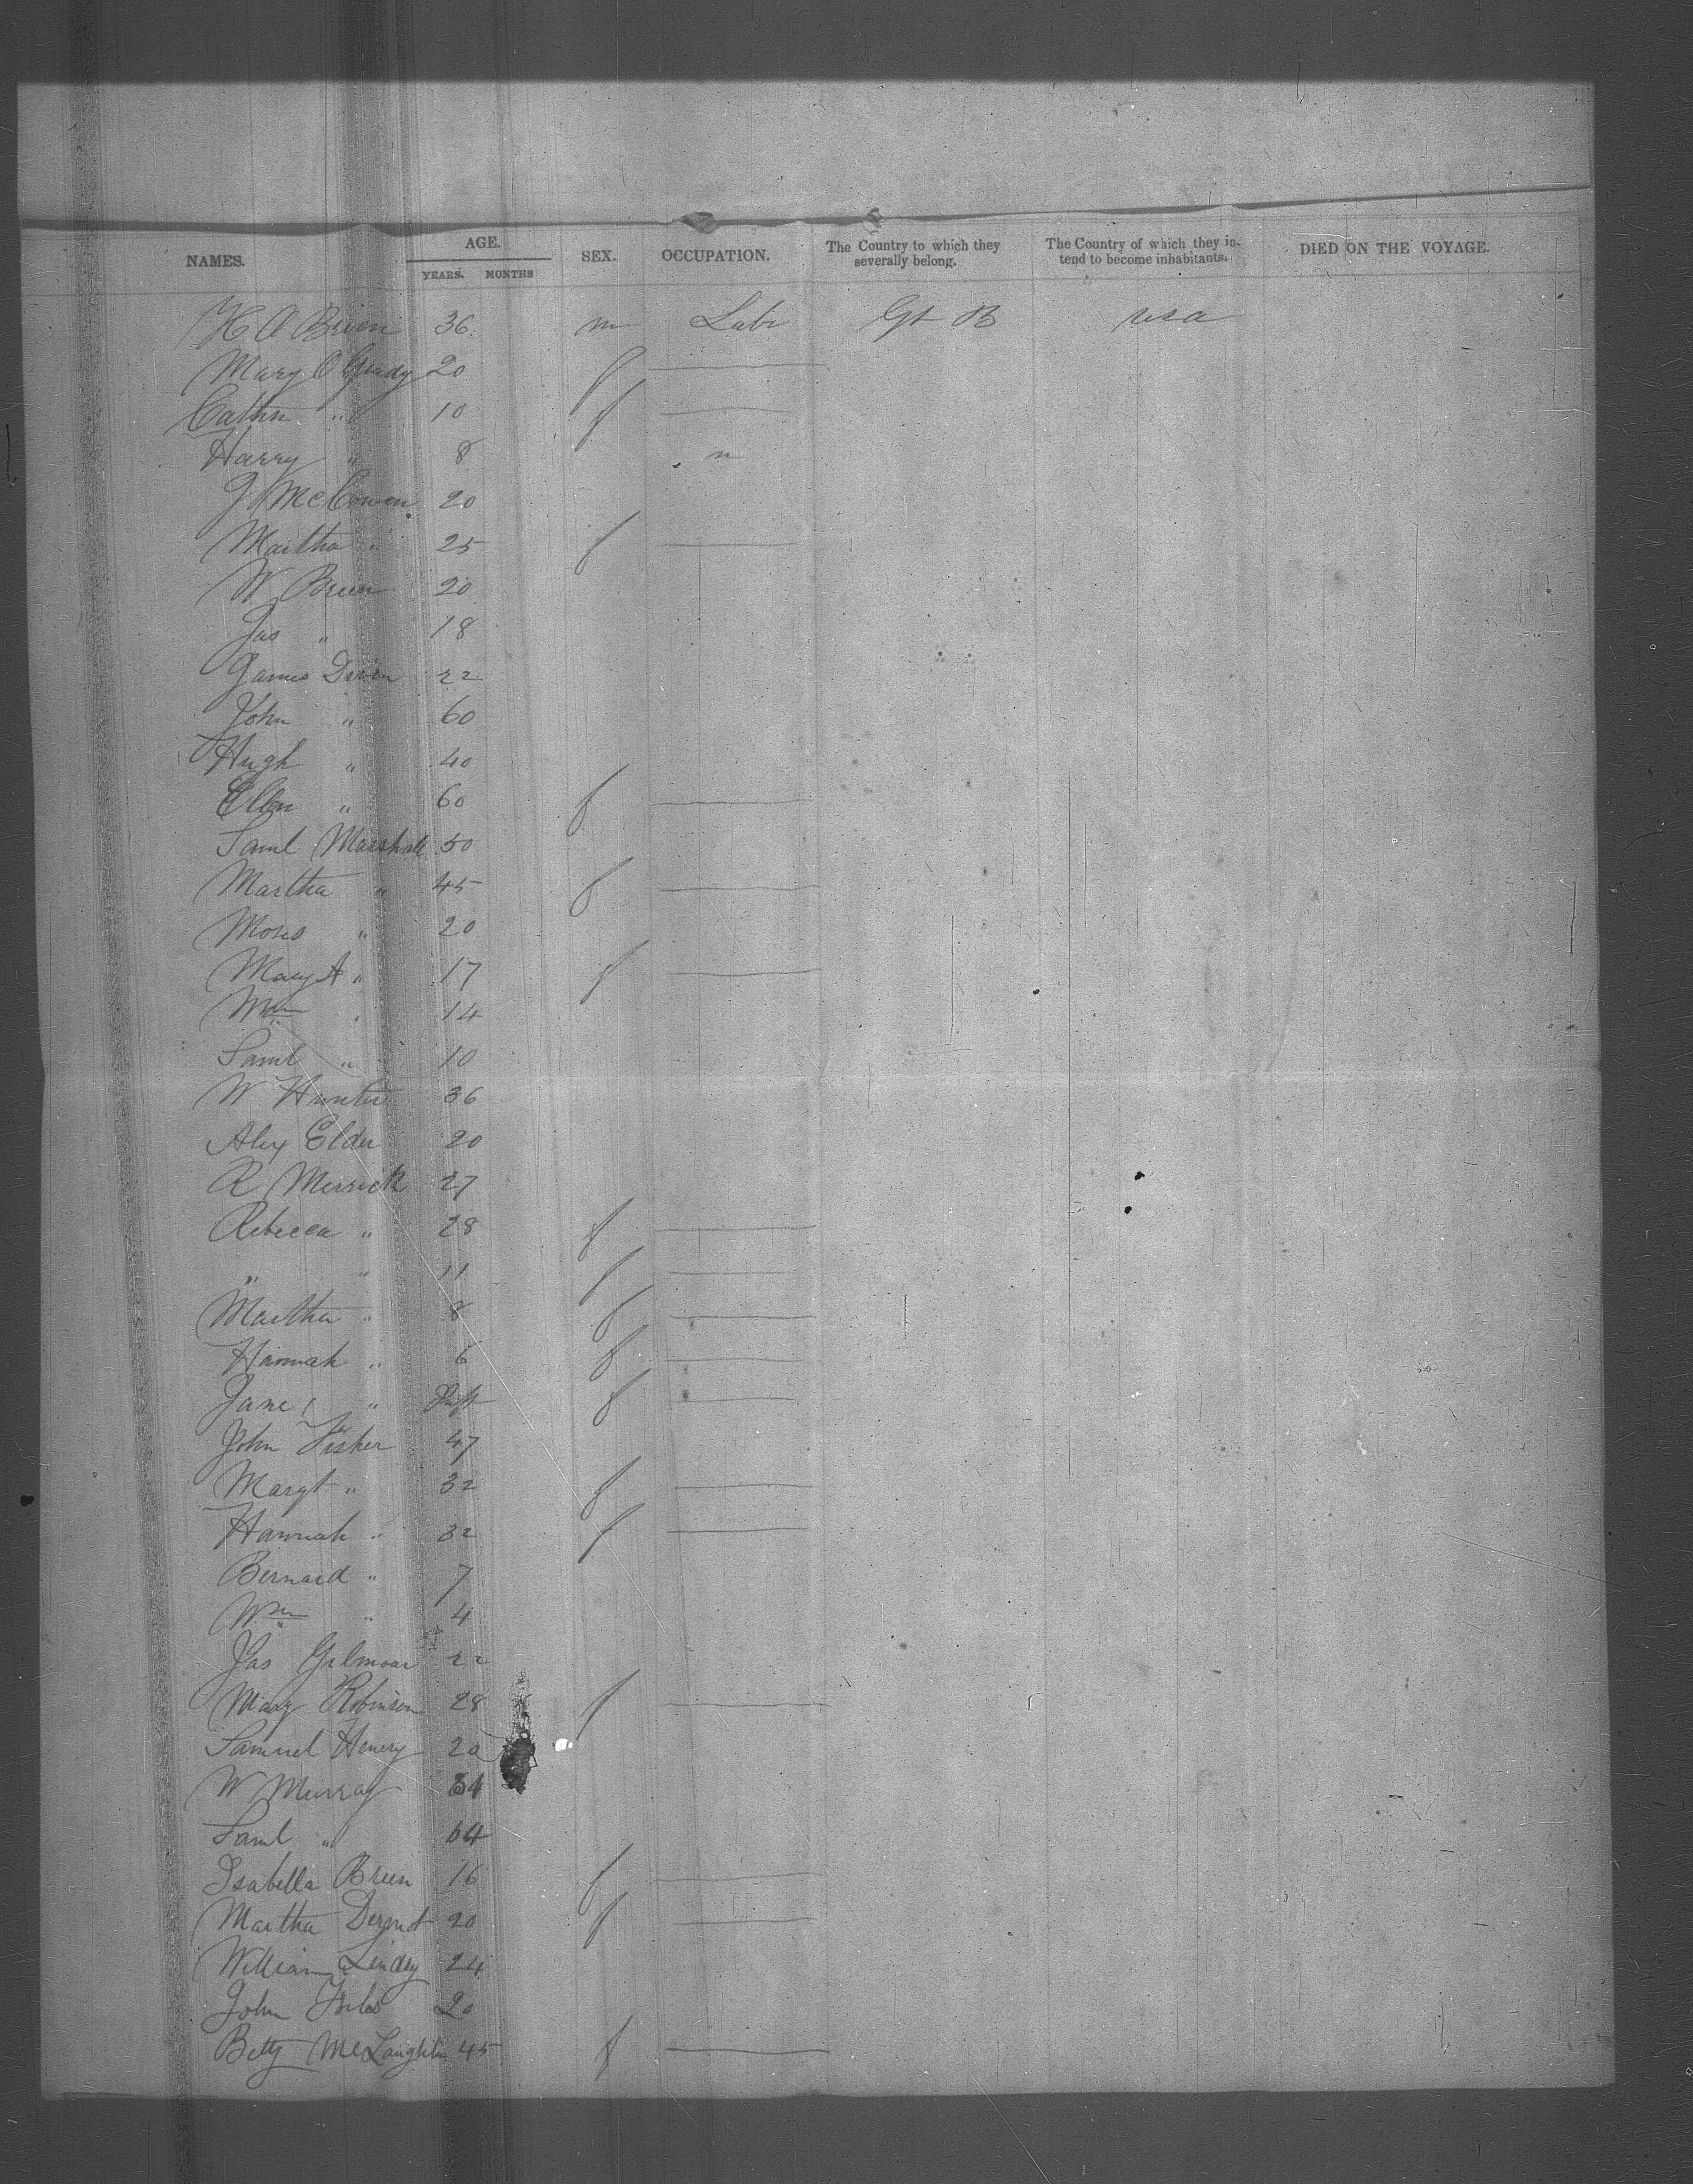 NAMES. AGE. SEX. OCCUPATION. The Country to which they severally belong. The Country of which they intend to become inhabitants. DIED ON THE VOYAGE.
YEARS. MONTHS
H O Brien 36 m Labr Gt B usa
Mary O Grady 20 f
Cathn " 10 f
Harry " 8 "
J McCowen 20
Martha " 25 f
W Breen 20
Jas " 18
James Diven 22
John " 60
Hugh " 40
Ellen " 60 f
Saml Marshall 50
Martha " 45 f
Moses " 20
Mary A " 17 f
Wm 14
Saml " 10
W Hunter 36
Alex Elder 20
R Merrick 27
Rebecca " 28 f
" " 11 f
Martha " 8 f
Hannah " 6 f
Jane " Inft f
John Fisher 47
Margt " 32 f
Hannah " 32 f
Bernard " 7
Wm " 4
Jas Gilmour 22
Mary Robinson 28 f
Samuel Henery 20
W Murray 34
Saml " 64
Isabella Breen 16 f
Martha 20 f
William Lindsy 24
John 20
Betty McLaughlin 45 f